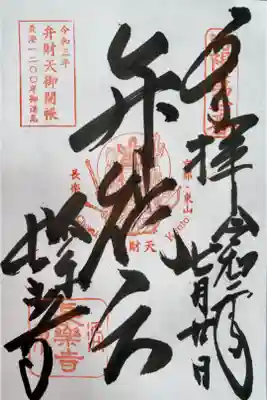 奉拝
令和三年
七月廿日
弁財天
長楽寺
令和三年
弁財天御開帳
最澄一二〇〇年御遠忌
京都・東山
Kyoto
長樂寺